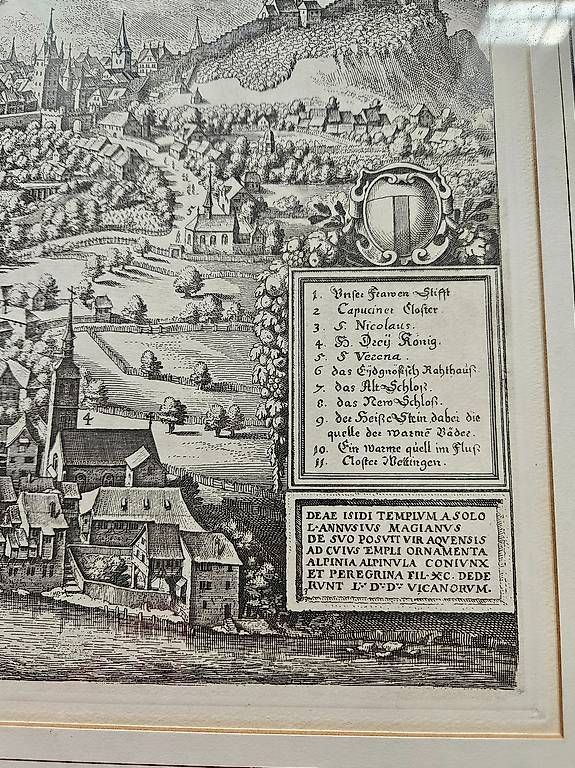 4
1. Unser Frawen Stifft
2 Capuciner Closter.
3. S. Nicolaus.
4. H. Dreÿ König.
5. S Verena.
6 das Eÿdgnoßisch Rahthauß
7. das Alt Schloß.
8. das New Schloß.
9. der Heiße Stein dabei die
quelle der warmē Bäder.
10. Ein warme quell im Fluß
11. Closter Wettingen.
DEAE ISIDI TEMPLVM A SOLO
L·ANNUSIUS MAGIANUS
DE SUO POSUTI VIR AQVENSIS
AD CVIVS TEMPLI ORNAMENTA
ALPINIA ALPINVLA CONIVNX
ET PEREGRINA FIL·XC· DEDE
RUNT L·D·D· VICANORVM.